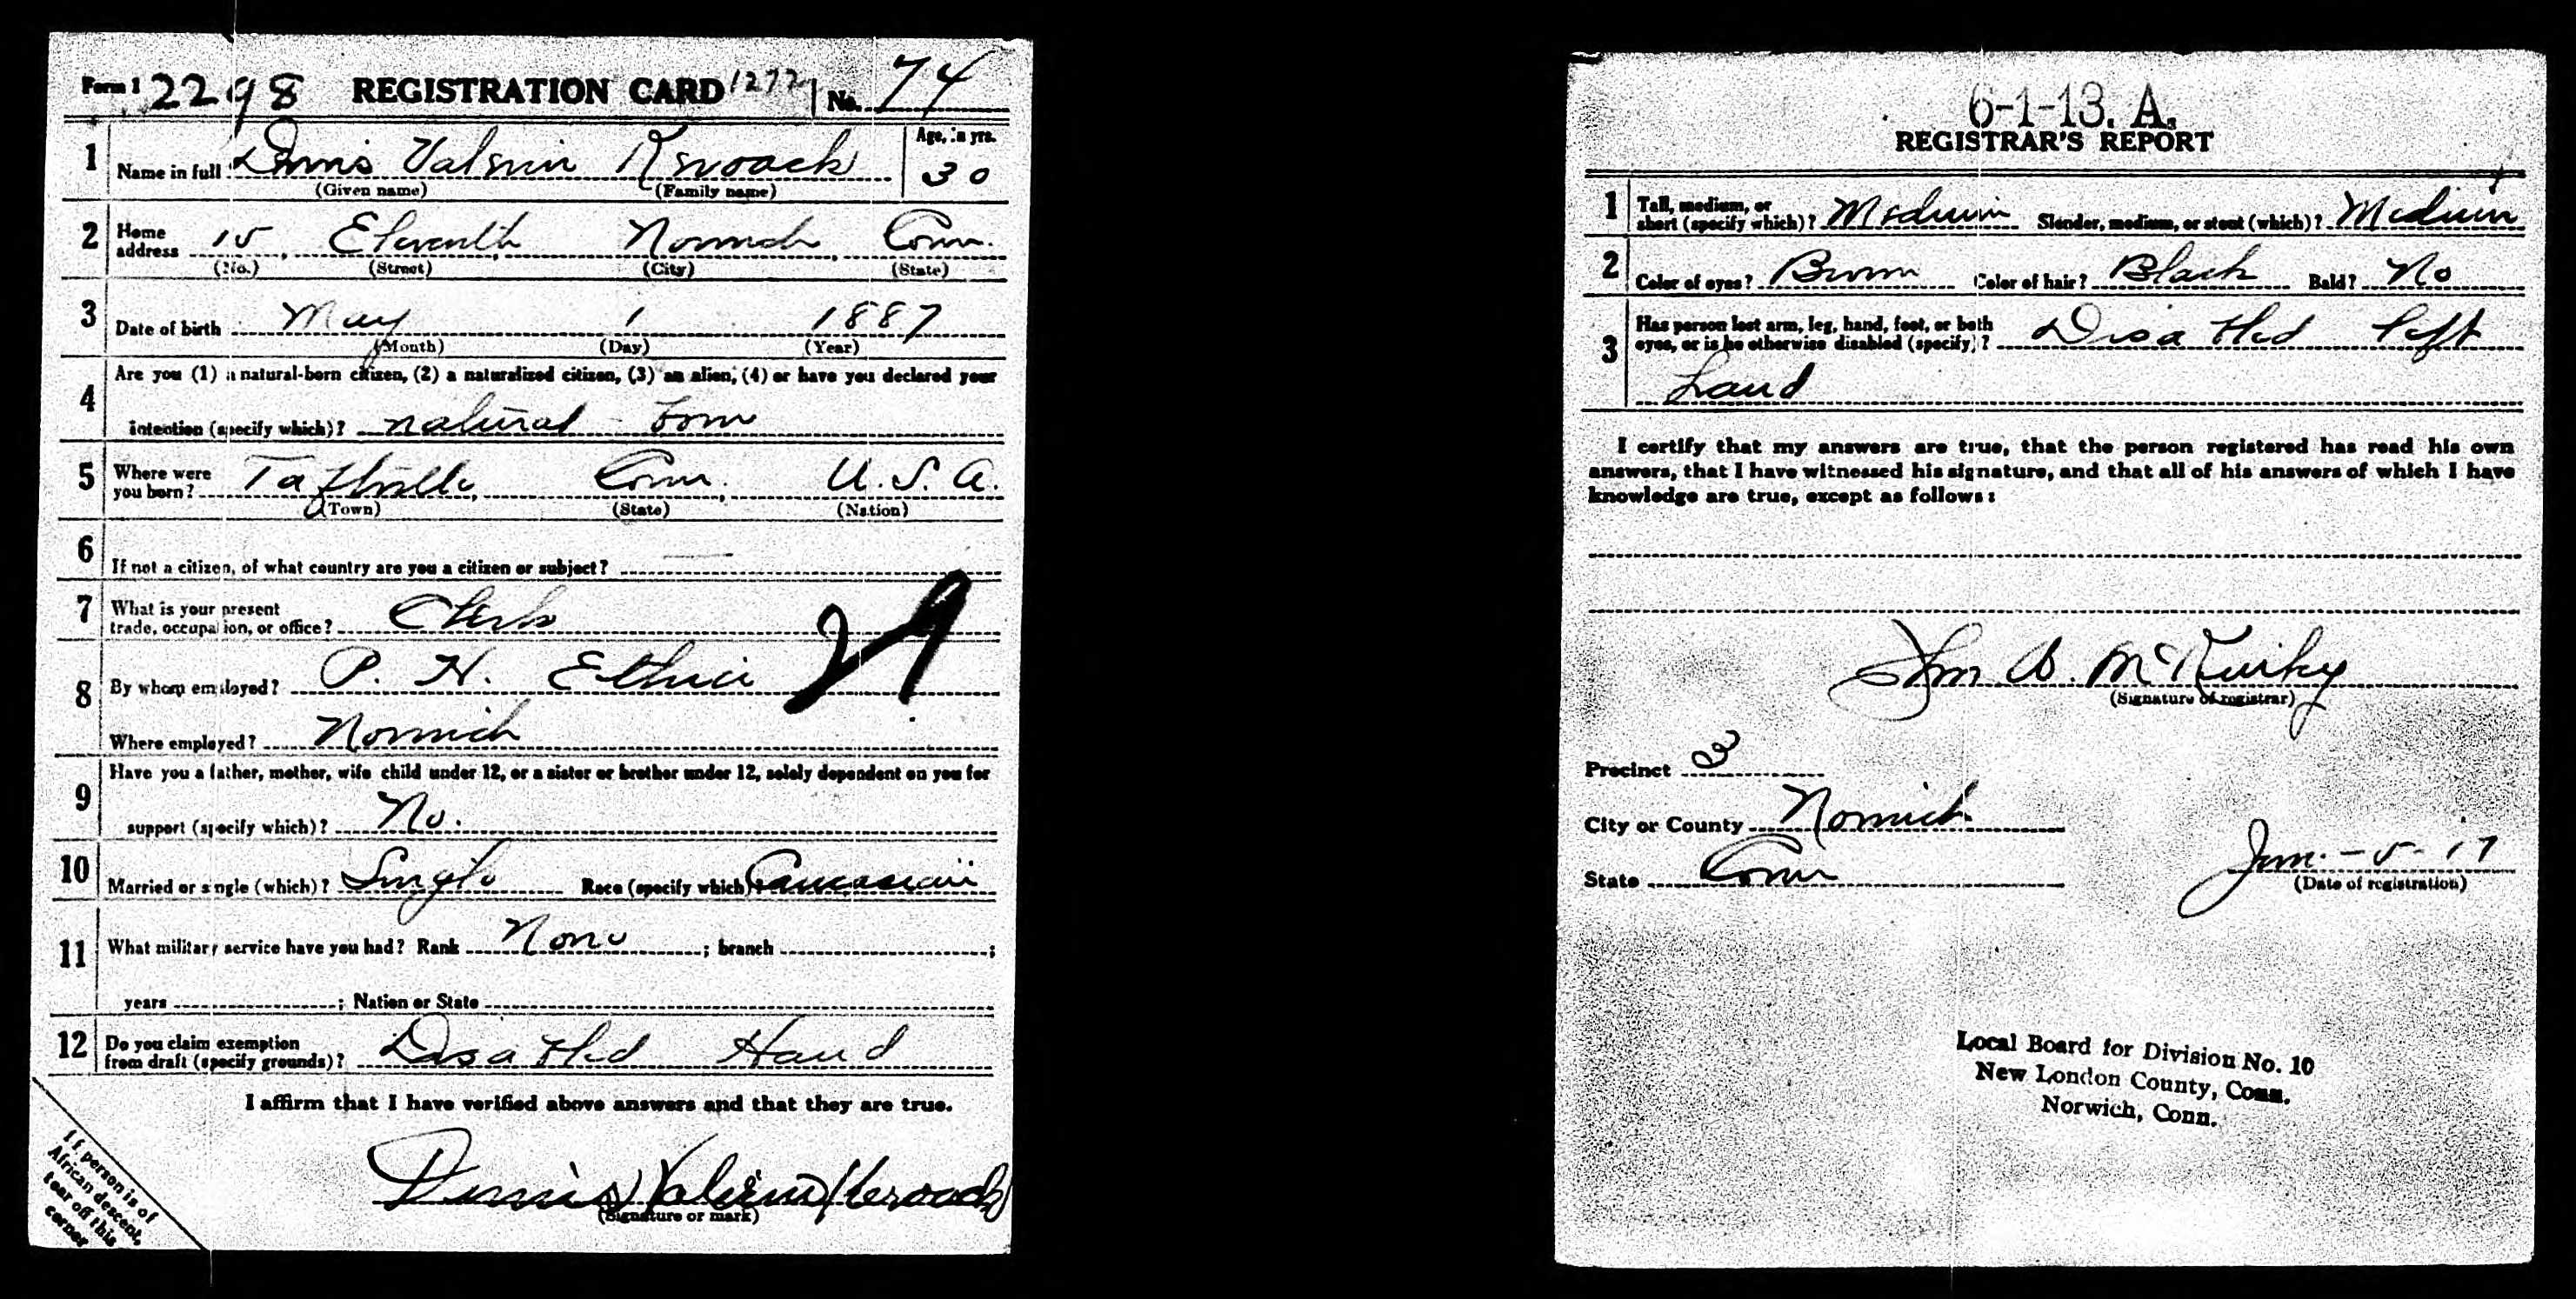 Form 1 2298 REGISTRATION CARD 1272 No. 74
1 Name in full Dennis Valmir Kerouack Age, in yrs. 30
(Given name) (Family name)
2 Home address 15 Eleventh Norwich Conn.
(No.) (Street) (City) (State)
3 Date of birth May 1 1887
(Month) (Day) (Year)
4 Are you (1) a natural-born citizen, (2) a naturalized citizen, (3) an alien, (4) or have you declared your
intention (specify which)? natural-born
5 Where were you born? Taftville Conn. U. S. A.
(Town) (State) (Nation)
6 If not a citizen, of what country are you a citizen or subject? —
7 What is your present trade, occupation, or office? Clerk
8 By whom employed? P. H.
Where employed? Norwich
9 Have you a father, mother, wife child under 12, or a sister or brother under 12, solely dependent on you for
support (specify which)? No.
10 Married or single (which)? Single Race (specify which)? Caucasian
11 What military service have you had? Rank None ; branch ;
years ; Nation or State
12 Do you claim exemption from draft (specify grounds)? Disabled Hand
I affirm that I have verified above answers and that they are true.
Kerouack
(Signature or mark)
If person is of
African descent,
tear off this
corner
6-1-13. A.
REGISTRAR'S REPORT
1 Tall, medium, or short (specify which)? Medium Slender, medium, or stout (which)? Medium
2 Color of eyes? Brown Color of hair? Black Bald? No
3 Has person lost arm, leg, hand, foot, or both eyes, or is he otherwise disabled (specify)? Disabled left
hand
I certify that my answers are true, that the person registered has read his own
answers, that I have witnessed his signature, and that all of his answers of which I have
knowledge are true, except as follows:
(Signature of registrar)
Precinct 3
City or County Norwich
State Conn Jun.-5-17
(Date of registration)
Local Board for Division No. 10
New London County, Conn.
Norwich, Conn.